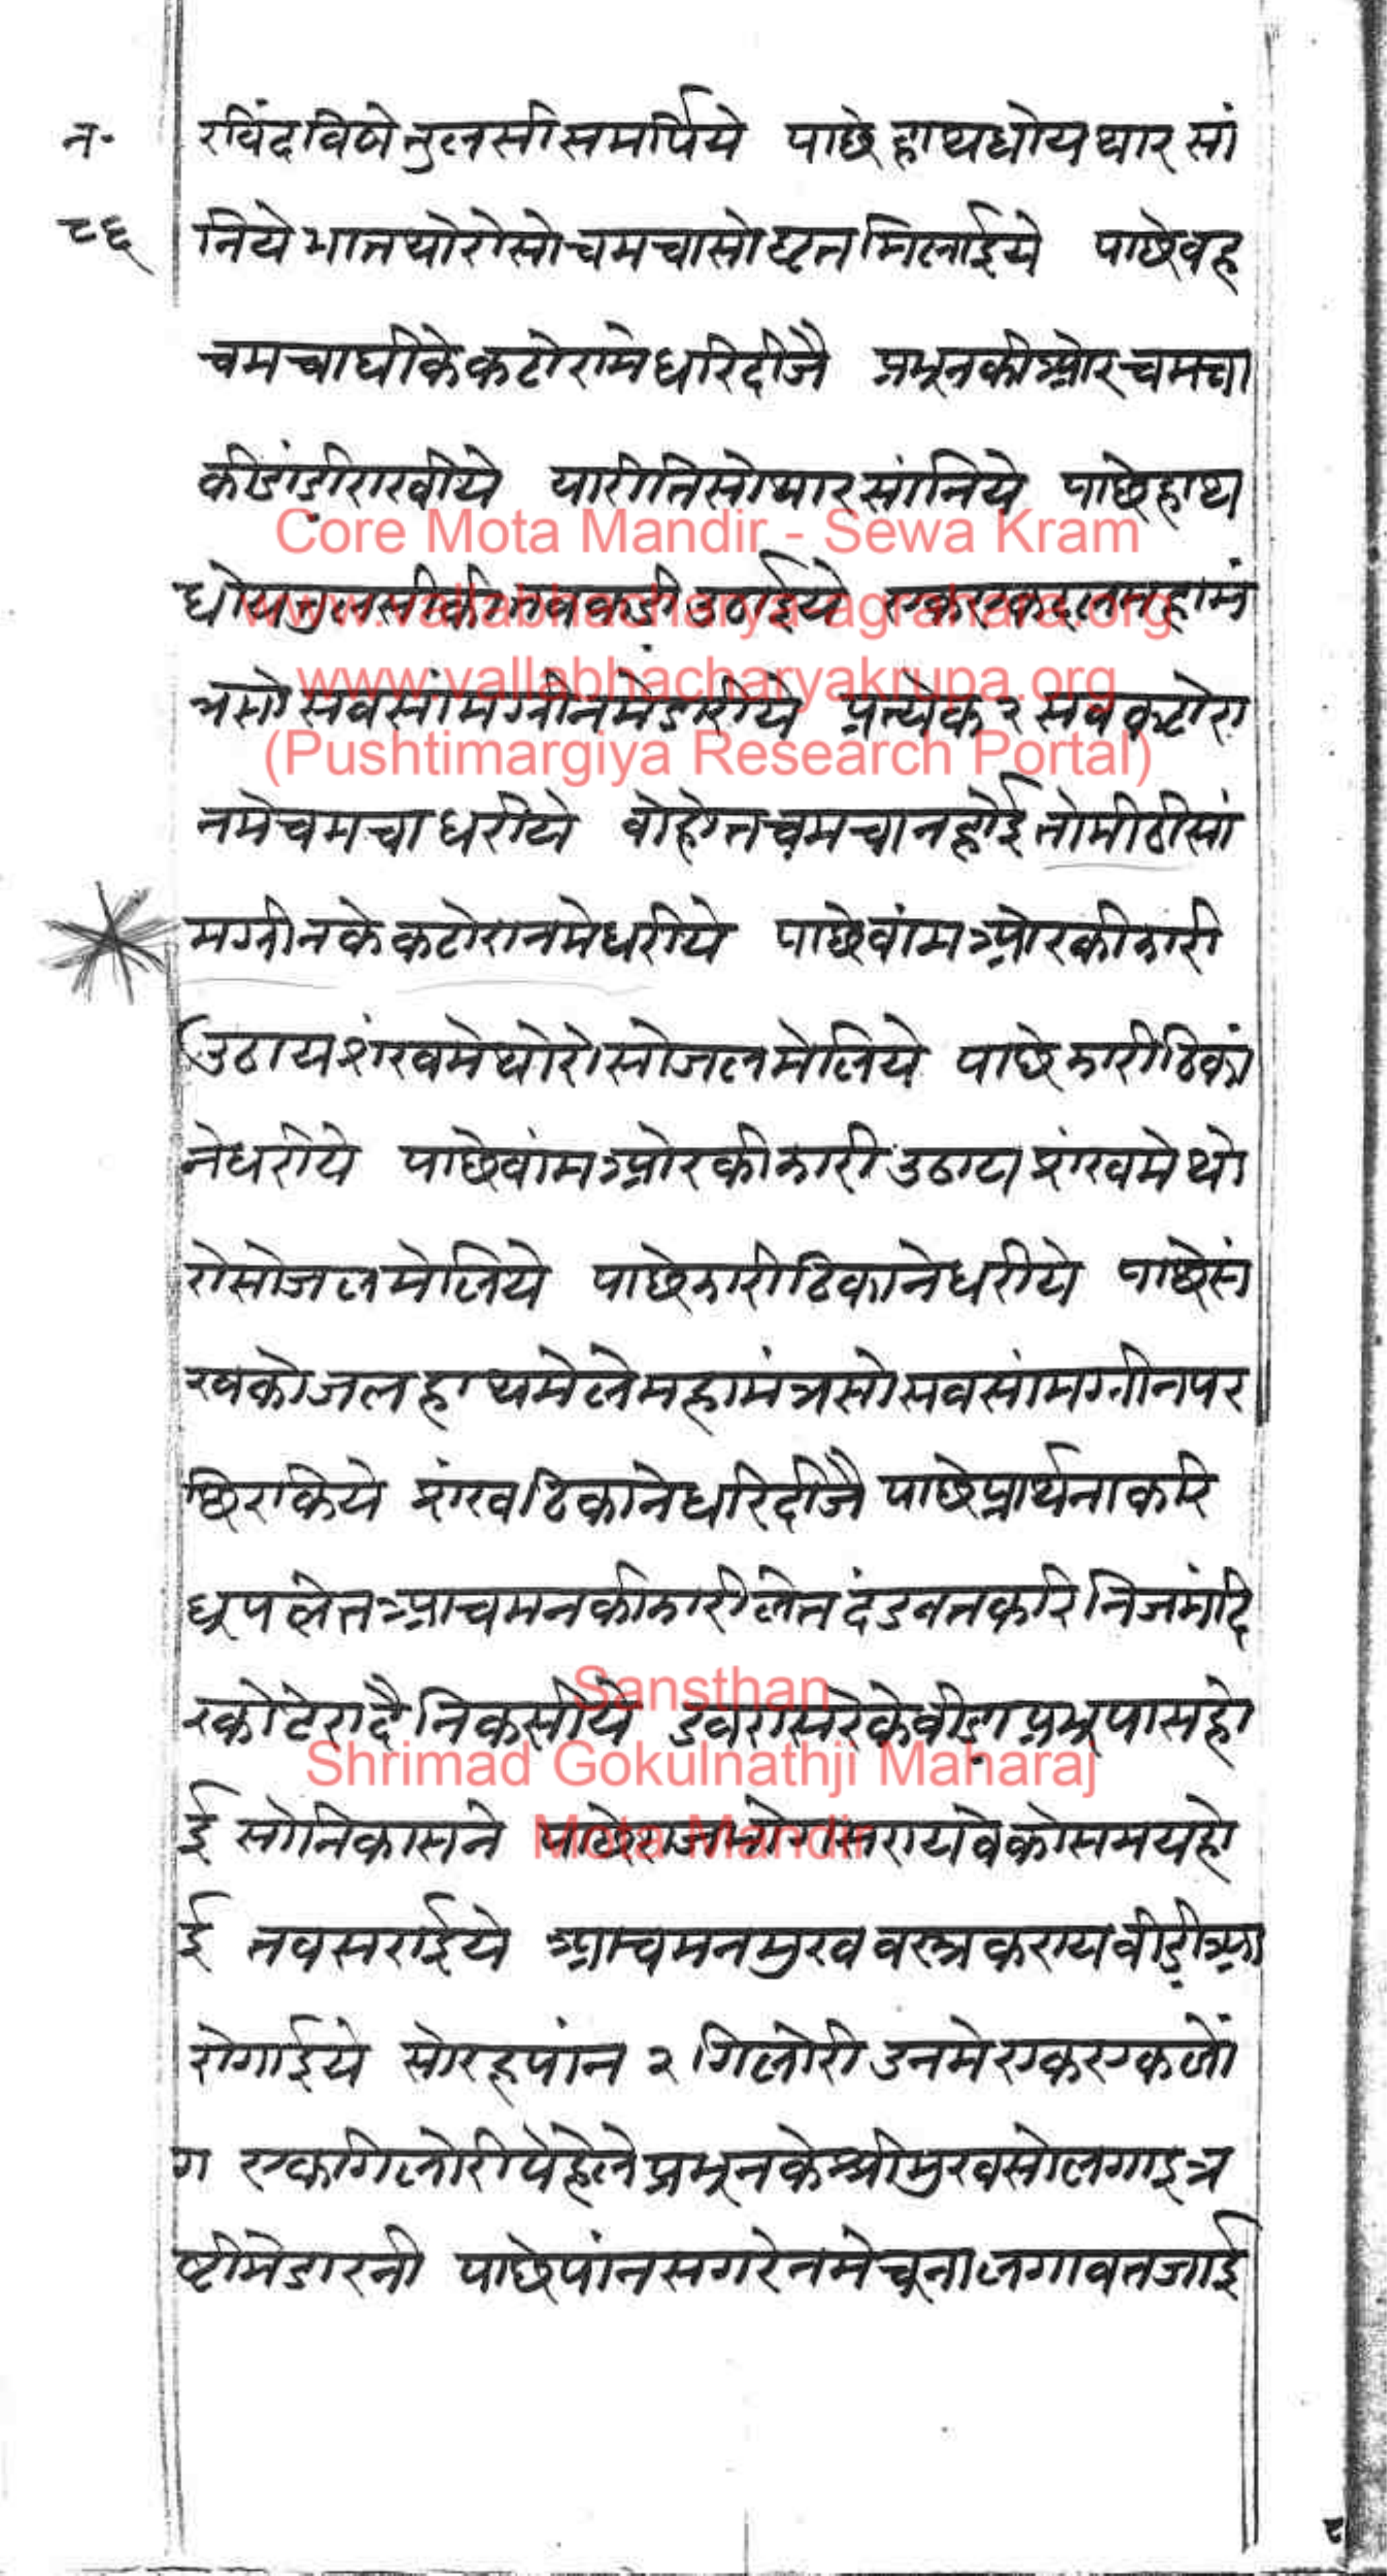 न॰
८६
रविंदविषे तुलसी समर्पिये पाछे हाथ धोय थार सां
निये भात थोरोसो चमचासो घृत मिलाईये पाछे वह
चमचा घीके कटोरामे धरि दीजै प्रभूनकी ओर चमचा
की डांड़ी राखीये या रीतिसो थार सांनिये पाछे हाथ
धोय तुलसीकी तबकड़ी उठाईये एक एक दल महामं
त्रसो सब सांमग्रीनमे डारीये प्रत्येक २ सब कटोरा
नमे चमचा धरीये वोहोत चमचा न होई तो मीठी सां
मग्रीनके कटोरानमे धरीये पाछे वांम ओरकी झारी
उठाय शंखमे थोरोसो जल मेलिये पाछे झारी ठिकां
ने धरीये पाछे वांम ओरकी झारी उठाय शंखमे थो
रोसो जल मेलिये पाछे झारी ठिकाने धरीये पाछे सं
खको जल हाथमे ले महामंत्रसो सब सांमग्रीन पर
छिरकिये शंख ठिकाने धरि दीजै पाछे प्रार्थना करि
धूप लेत आचमनकी झारी लेत दंडवत करि निज मंदि
रको टेरा दै निकसीये डबरा सरेके बीड़ा प्रभू पास हो
ई सो निकासने पाछे राजभोग सरायवेको समय हो
ई तब सराईये आचमन मुख वस्त्र कराय बीड़ी आ
रोगाईये सोरह पांन २ गिलोरी उनमे एक एक लों
ग एक गिलोरी पेहेले प्रभूनके श्रीमुखसो लगाइ त्र
ष्टिमे डारनी पाछे पांन सगरेनमे चूना लगावत जाई
Core Mota Mandir - Sewa Kram
www.vallabhacharya-agrahara.org
www.vallabhacharyakrupa.org
(Pushtimargiya Research Portal)
Sansthan
Shrimad Gokulnathji Maharaj
Mota Mandir